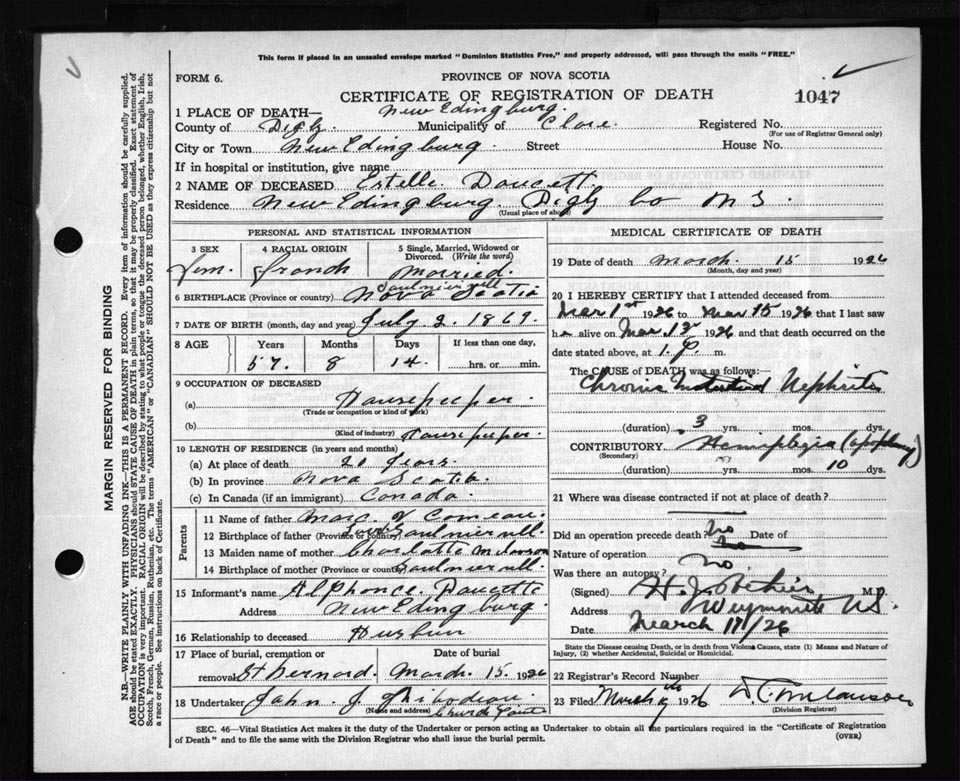 This form if placed in an unsealed envelope marked "Dominion Statistics Free," and properly addressed, will pass through the mails "FREE."
FORM 6.
PROVINCE OF NOVA SCOTIA
CERTIFICATE OF REGISTRATION OF DEATH
1047
1 PLACE OF DEATH— New Edingburg.
County of Digby. Municipality of Clare. Registered No.
(For use of Registrar General only)
City or Town New Edingburg. Street House No.
If in hospital or institution, give name
2 NAME OF DECEASED Estelle Doucett.
Residence New Edingburg. Digby Co N S.
(Usual place of abode)
PERSONAL AND STATISTICAL INFORMATION
3 SEX 4 RACIAL ORIGIN 5 Single, Married, Widowed or Divorced. (Write the word)
fem. french Married.
Saulnierville
6 BIRTHPLACE (Province or country) Nova Scotia
7 DATE OF BIRTH (month, day and year) July 2. 1869.
8 AGE Years Months Days If less than one day,
57. 8 14. hrs. or min.
9 OCCUPATION OF DECEASED
(a) Housepeeper.
(Trade or occupation or kind of work)
(b)
(Kind of industry) Housepeeper.
10 LENGTH OF RESIDENCE (in years and months)
(a) At place of death 21 years.
(b) In province Nova Scotia.
(c) In Canada (if an immigrant) Canada.
Parents
11 Name of father Marc. Comeau.
12 Birthplace of father (Province or country) Saulnierville.
13 Maiden name of mother Charlotte
14 Birthplace of mother (Province or country) Saulnierville
15 Informant's name Alphonce Doucette
Address New Edingburg.
16 Relationship to deceased Husbun
17 Place of burial, cremation or removal Date of burial
St Bernard. March. 15. 1926
18 Undertaker John. J. Thibodeau.
(Name and address) Church Point
MEDICAL CERTIFICATE OF DEATH
19 Date of death March 15 1926
(Month, day and year)
20 I HEREBY CERTIFY that I attended deceased from
Mar 1st 1926 to Mar 15 1926 that I last saw
h alive on Mar 13 1926 and that death occurred on the
date stated above, at 1. P. m.
The CAUSE of DEATH was as follows:—
Chronic Interstitial Nephritis
(duration) 3 yrs. mos. dys.
CONTRIBUTORY Hemiplegia (apoplexy)
(Secondary)
(duration) yrs. mos. 10 dys.
21 Where was disease contracted if not at place of death?
Did an operation precede death? No Date of
Nature of operation
Was there an autopsy? No.
(Signed) M.D.
Address Weymouth N.S.
Date March 17/26
State the Disease causing Death, or in death from Violent Causes, state (1) Means and Nature of Injury, (2) whether Accidental, Suicidal or Homicidal.
22 Registrar's Record Number
23 Filed March 1926
(Division Registrar)
SEC. 46—Vital Statistics Act makes it the duty of the Undertaker or person acting as Undertaker to obtain all the particulars required in the "Certificate of Registration
of Death" and to file the same with the Division Registrar who shall issue the burial permit. (OVER)
MARGIN RESERVED FOR BINDING
N.B.—WRITE PLAINLY WITH UNFADING INK—THIS IS A PERMANENT RECORD. Every item of information should be carefully supplied.
AGE should be stated EXACTLY. PHYSICIANS should STATE CAUSE OF DEATH in plain terms, so that it may be properly classified. Exact statement of
OCCUPATION is very important. RACIAL ORIGIN will be described by stating to what people or tongue the deceased person belonged, whether English, Irish,
Scotch, French, German, Russian, Ruthenian, etc. The terms "AMERICAN" or "CANADIAN" SHOULD NOT BE USED as they express citizenship but not
a race or people. See instructions on back of Certificate.